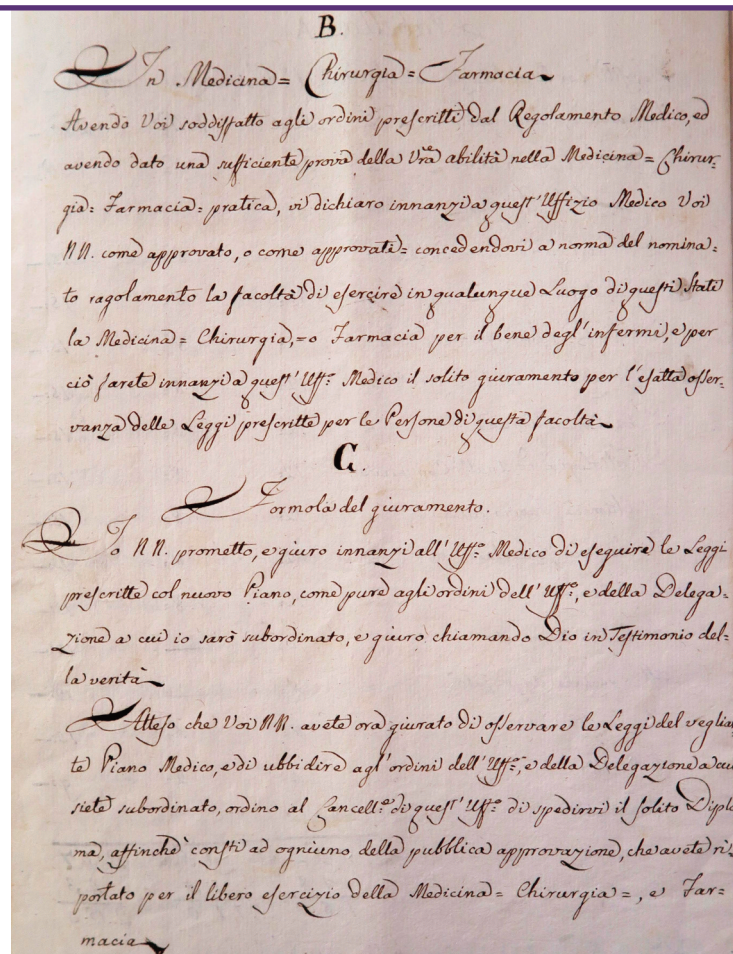 B.
In Medicina= Chirurgia= Farmacia
Avendo Voi soddisfatto agli ordini prescritti dal Regolamento Medico, ed
avendo dato una sufficiente prova della Vrã abilità nella Medicina= Chirur-
gia= Farmacia= pratica, vi dichiaro innanzi a quest'Uffizio Medico Voi
NN. come approvato, o come approvati= concedendovi a norma del nomina=
to ragolamento la facoltà di esercire in qualunque Luogo di questi Stati
la Medicina= Chirurgia,=o Farmacia per il bene degl'infermi, e per
ciò farete innanzi a quest'Uff.º Medico il solito giuramento per l'esatta osser-
vanza delle Leggi prescritte per le Persone di questa facoltà
C.
Formola del giuramento.
Io NN. prometto, e giuro innanzi all'Uff.º Medico di eseguire le Leggi
prescritte col nuovo Piano, come pure agli ordini dell'Uff.º, e della Delega=
zione a cui io sarò subordinato, e giuro chiamando Dio in Testimonio del=
la verità
Atteso che Voi NN. avete ora giurato di osservare le Leggi del veglian
te Piano Medico, e di ubbidire agl'ordini dell'Uff.º, e della Delegazione a cui
siete subordinato, ordino al Cancell.º di quest'Uff.º di spedirvi il solito Diplo
ma, affinchè consti ad ogniuno della pubblica approvazione, che avete ri
portato per il libero esercizio della Medicina= Chirurgia=, e Far=
macia